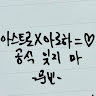 아스트로X아로하=♡
공식 잊지 마
-문빈-